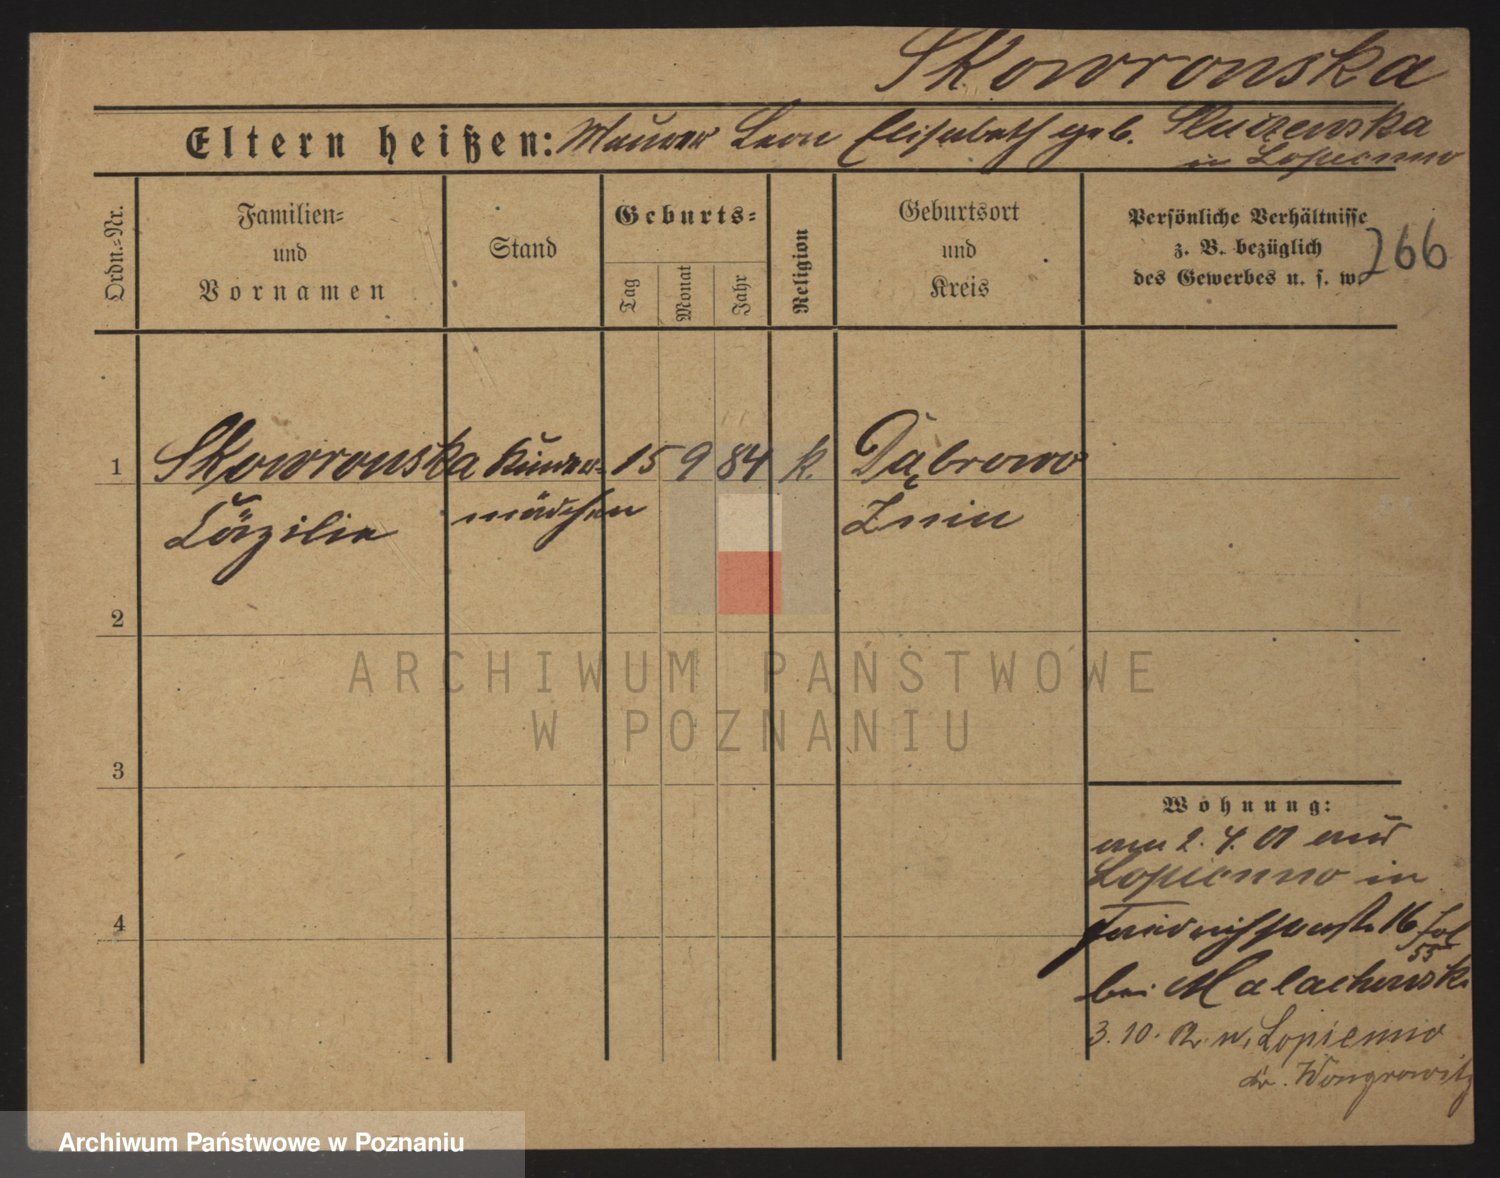 Skowronska
Eltern heißen: Maurer Leon Elisabeth geb. Sluzewska
in Lopienno
Ordn.=Nr.
Familien=
und
Vornamen
Stand
Geburts=
Tag
Monat
Jahr
Religion
Geburtsort
und
Kreis
Persönliche Verhältnisse
z. B. bezüglich
des Gewerbes u. s. w.
266
1 Skowronska Kinder= 15 9 84 k. Dąbrowo
Cäzilie mädchen Znin
2
3
4
ARCHIWUM PAŃSTWOWE
W POZNANIU
Wohnung:
am 2. 4. 01 aus
Lopienno in
Friedrichstr. 16
55
bei Malachowski
3. 10. n. Lopienno
Kr. Wongrowitz
Archiwum Państwowe w Poznaniu